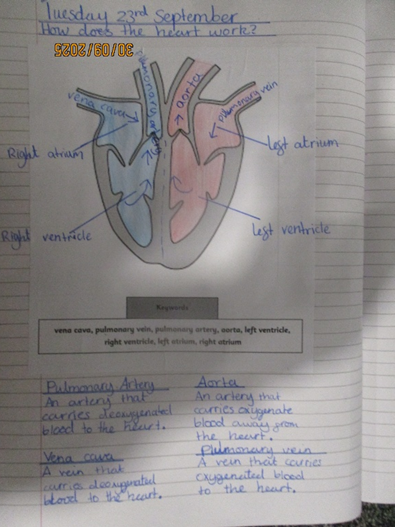 Tuesday 23rd September
How does the heart work?
30/09/2025
vena cava
pulmonary artery
aorta
pulmonary vein
Right atrium
Left atrium
Right ventricle
Left ventricle
Keywords
vena cava, pulmonary vein, pulmonary artery, aorta, left ventricle,
right ventricle, left atrium, right atrium
Pulmonary Artery
An artery that
carries deoxygenated
blood to the heart.
Aorta
An artery that
carries oxygenate
blood away from
the heart.
Vena cava
A vein that
carries deoxygenated
blood to the heart.
Pulmonary vein
A vein that carries
oxygenated blood
to the heart.